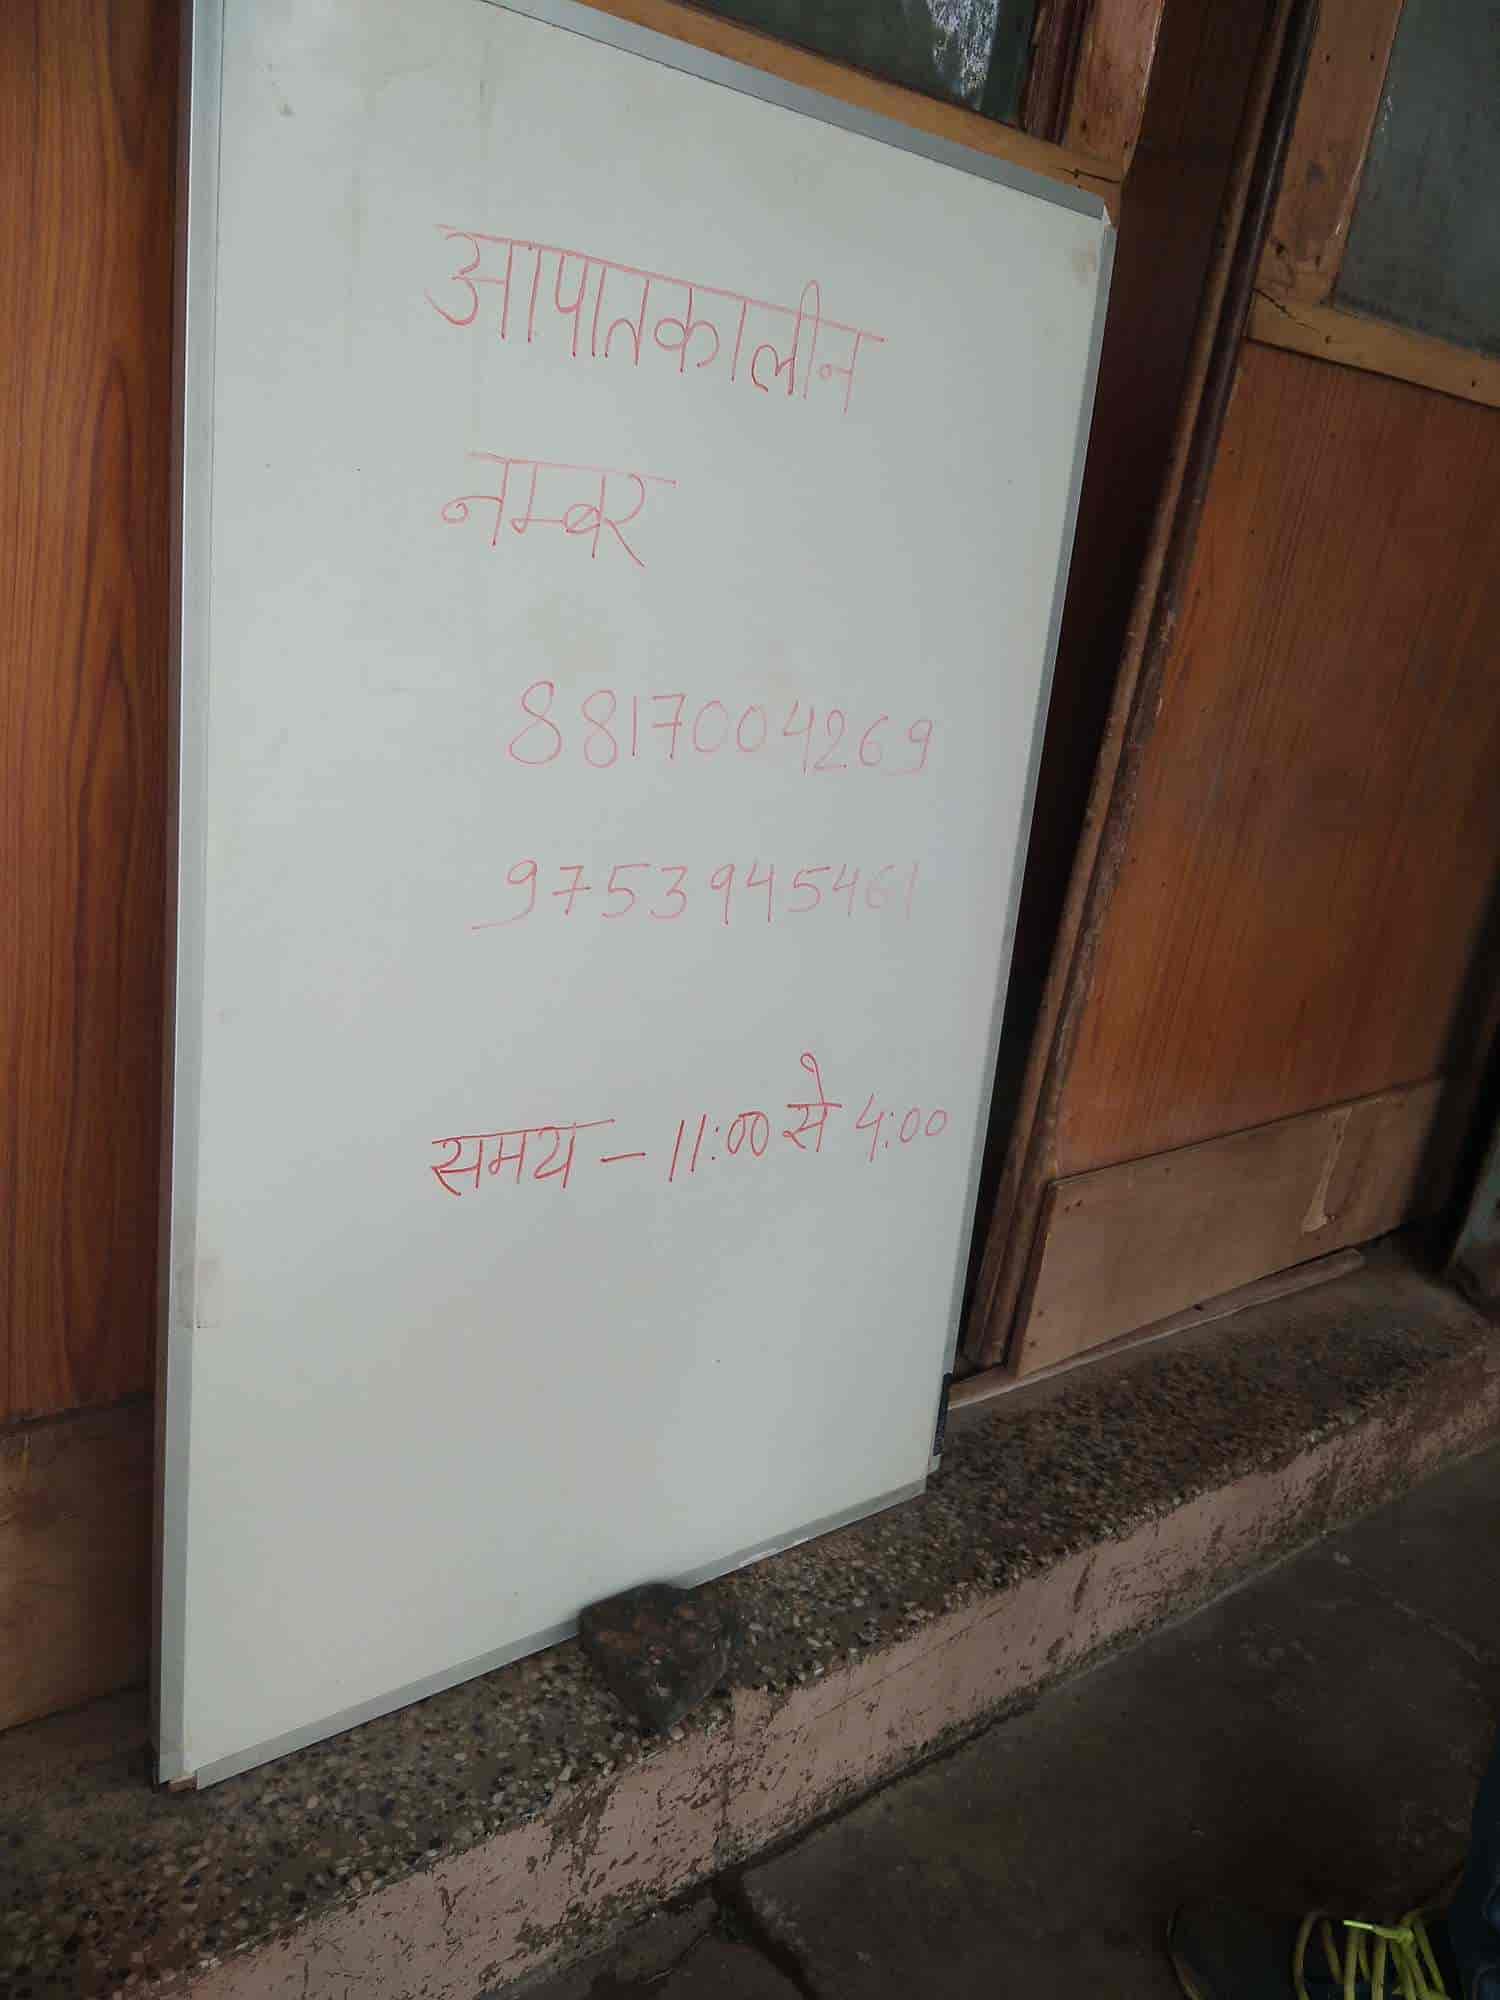 आपातकालीन
नम्बर
8817004269
9753945461
समय - 11:00 से 4:00